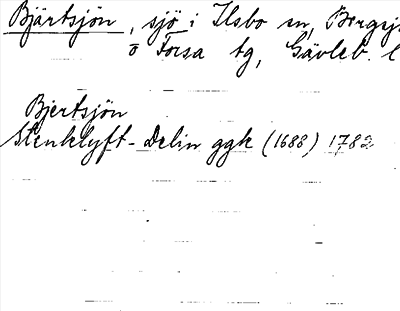 Bjärtsjön, sjö i Ilsbo sn, Bergsj
o Forsa tg, Gävleb. l
Bjertsjön
Stenklyft-Delin ggk (1688) 1782